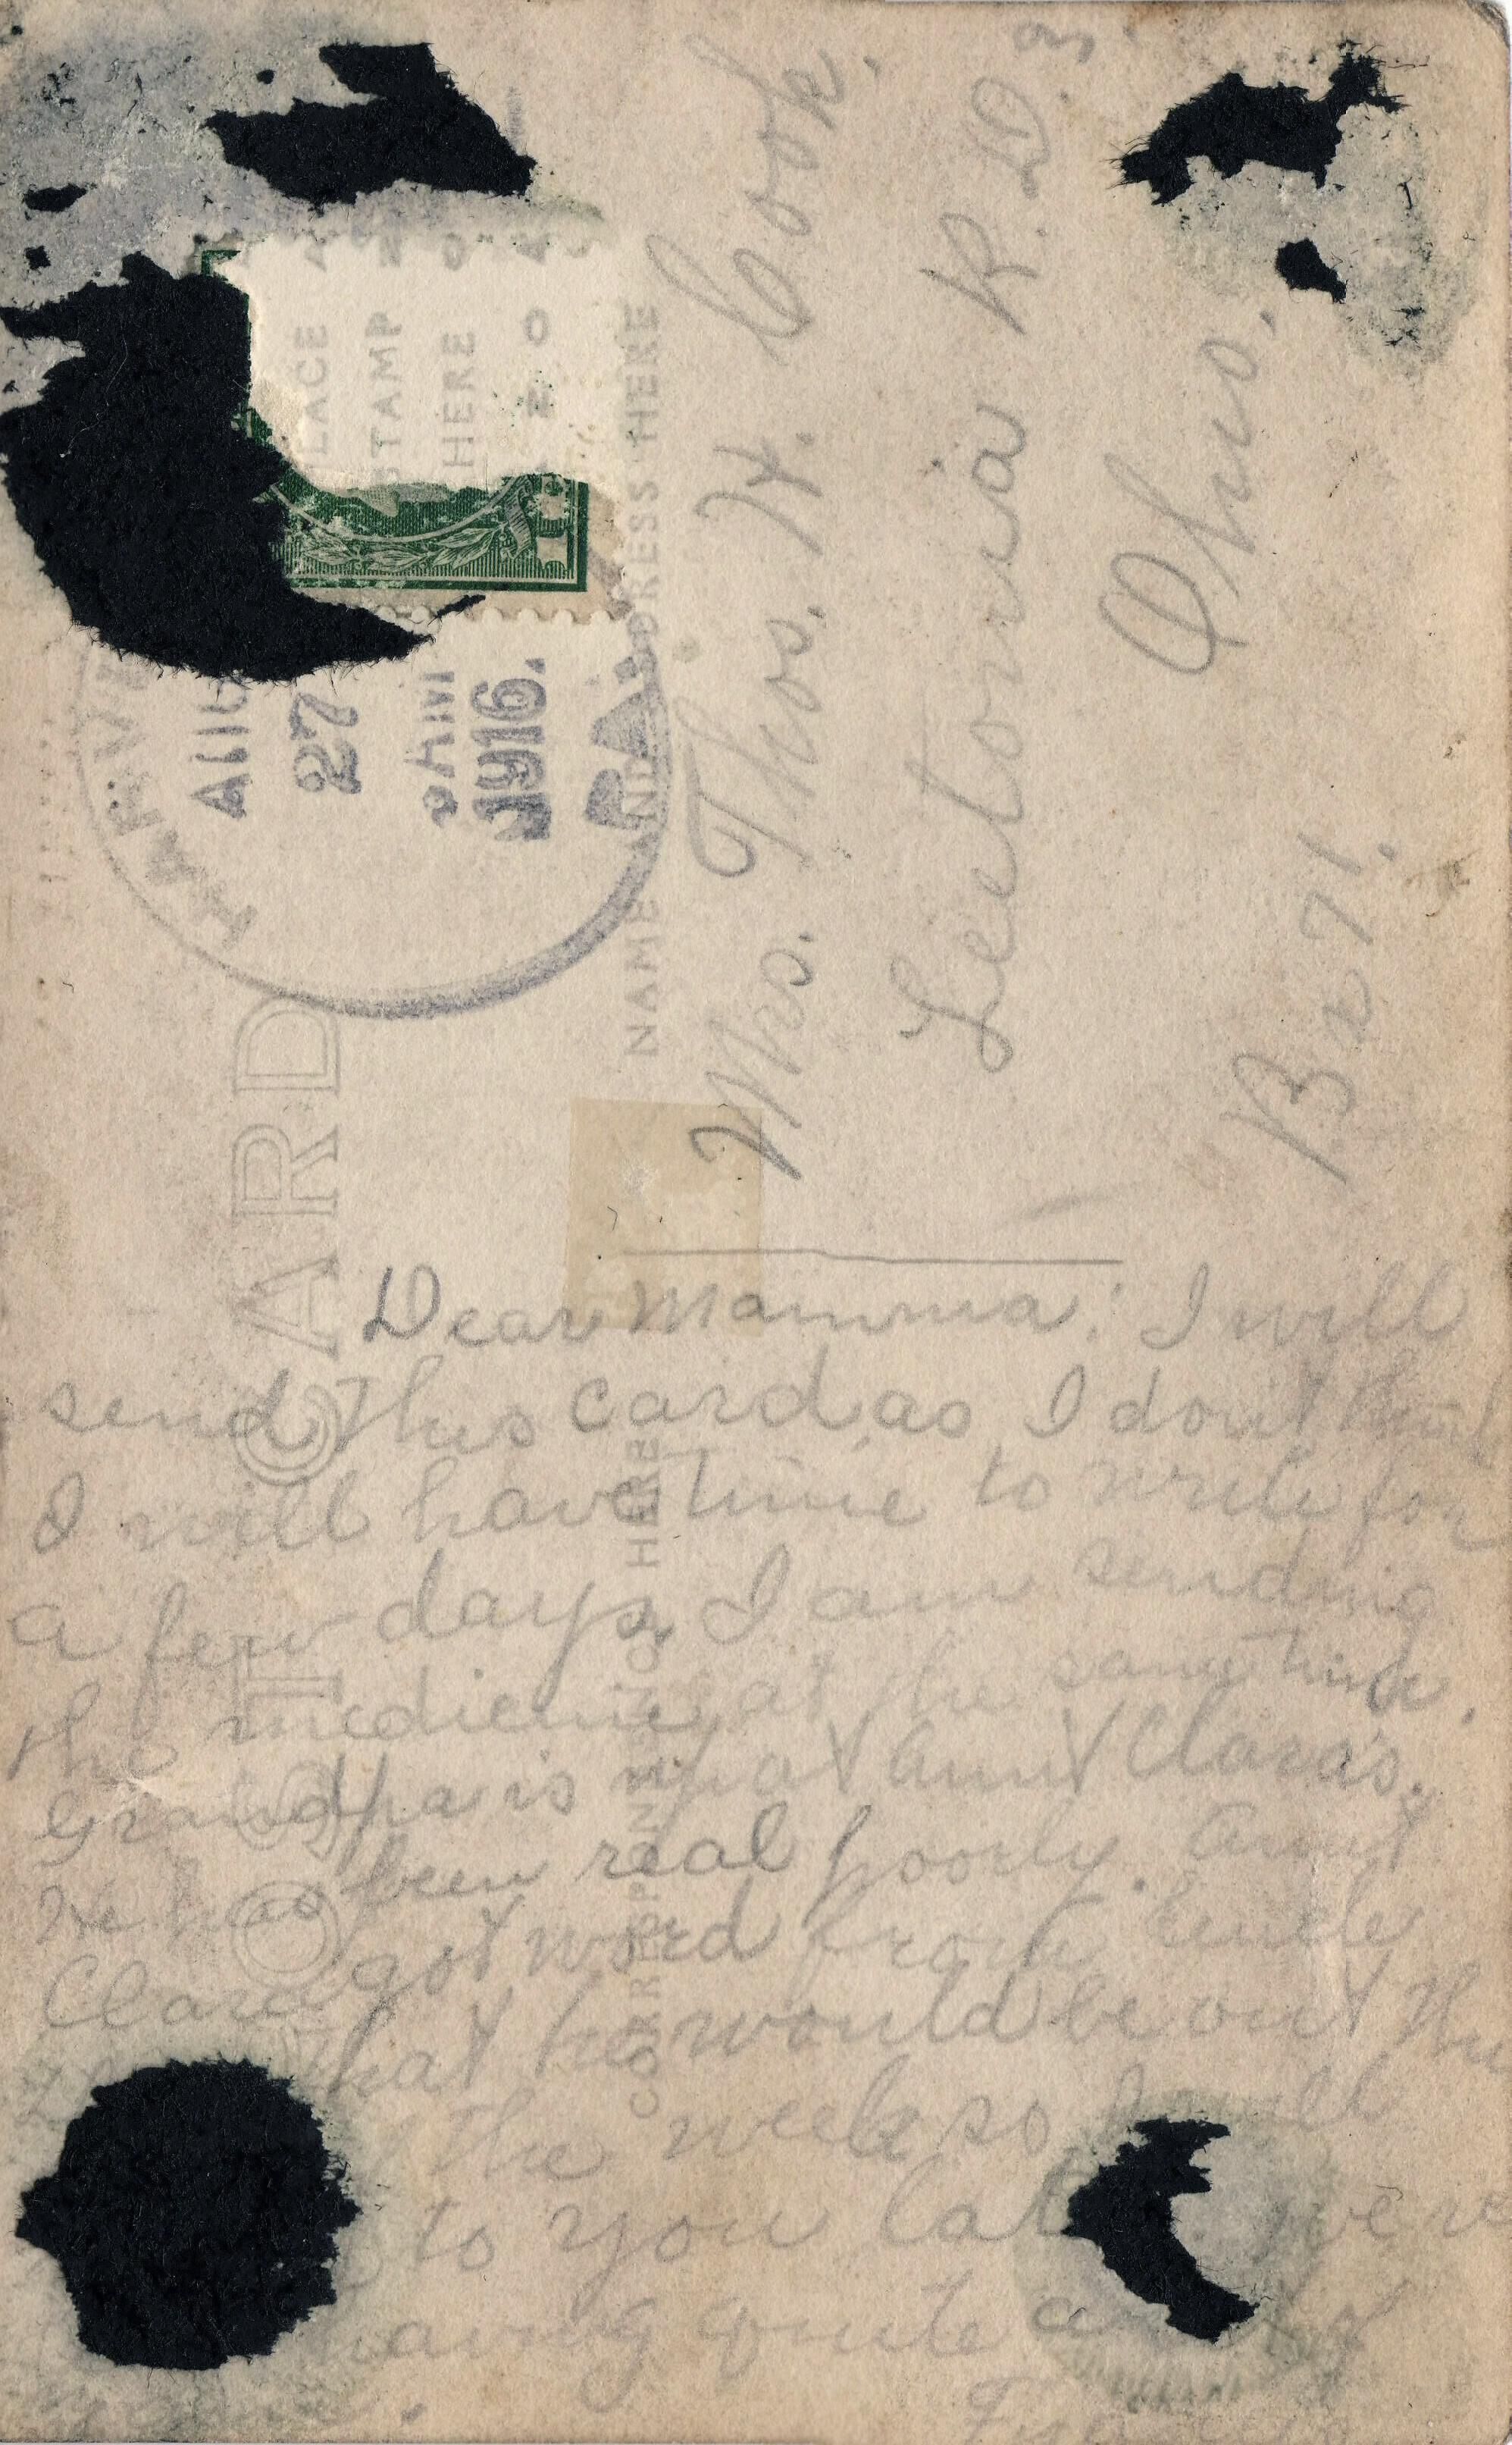 POST CARD
PLACE
STAMP
HERE
AUG
27
AM
1916.
PA.
NAME AND ADDRESS HERE
CORRESPONDENCE HERE
Mrs. Thos. H. Cook.
Leetonia R.D.
Ohio.
Dear Mamma: I will
send this card as I dont think
I will have time to write for
a few days, I am sending
the medicine at the same time.
Grandpa is up at Aunt Clara's.
He has been real poorly. Aunt
Clara got word from Uncle
that he would be out the
the week so I will
to you
quite a